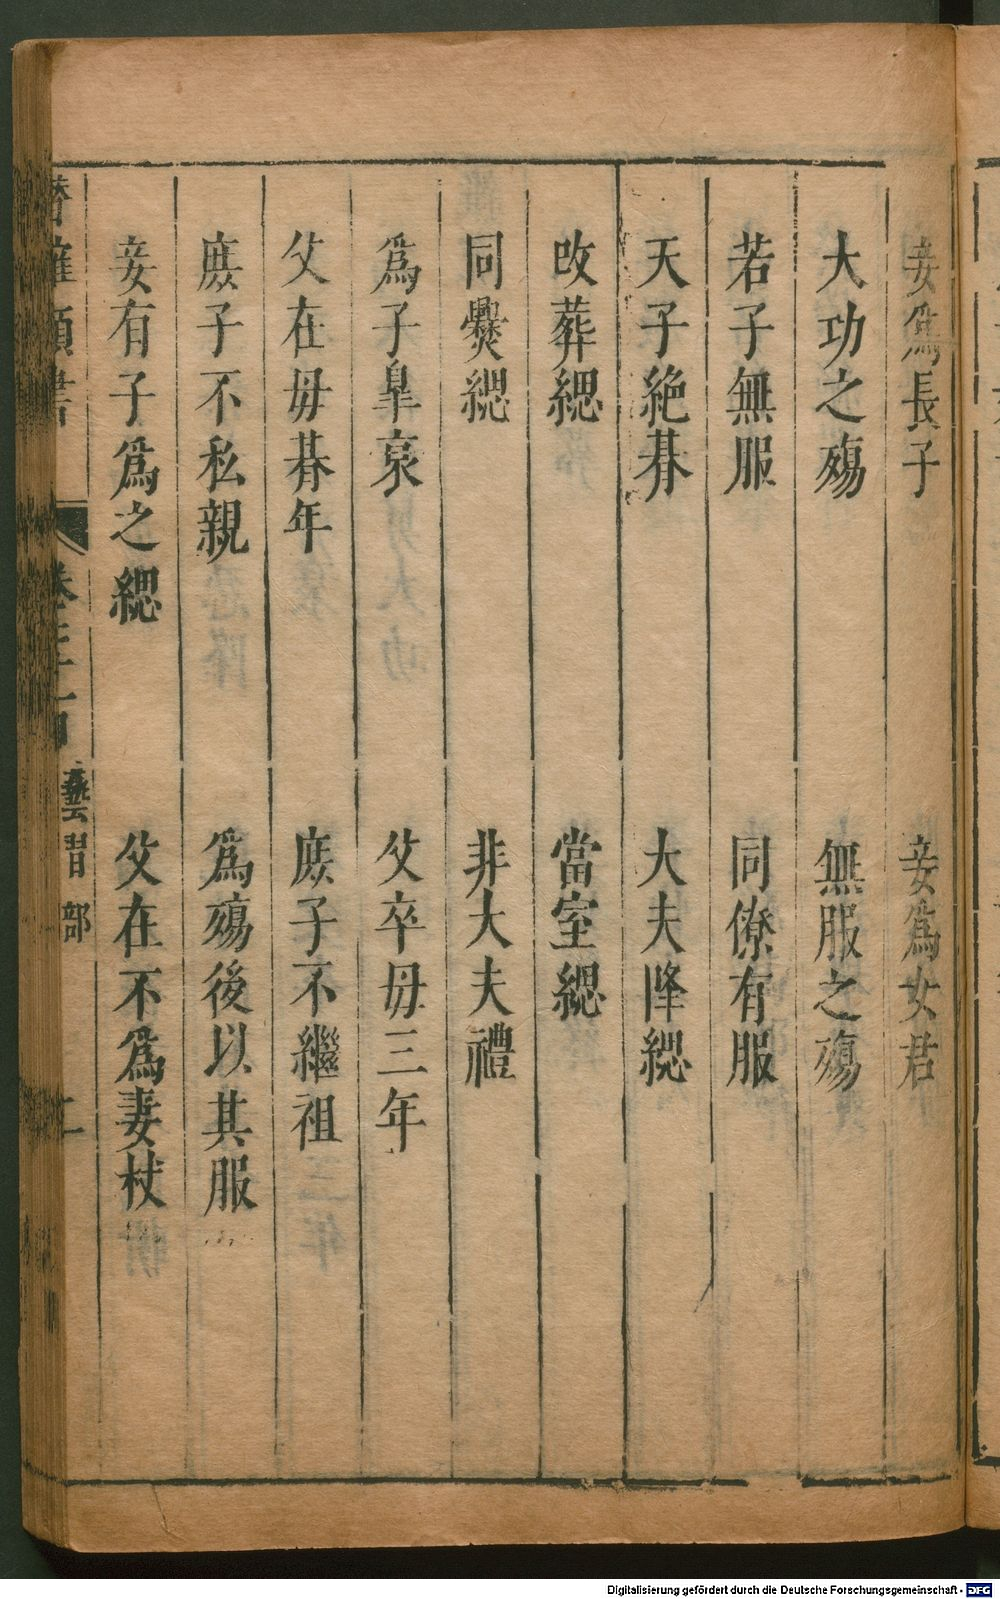 妾爲長子　妾爲女君
大功之殤　無服之殤
若子無服　同僚有服
天子絶朞　大夫降緦
改葬緦　當室緦
同爨緦　非大夫禮
爲子皐哀　父卒毋三年
父在毋朞年　庻子不繼祖
庻子不私親　爲殤後以其服
妾有子爲之緦　父在不爲妻杖
藝習部
二
Digitalisierung gefördert durch die Deutsche Forschungsgemeinschaft - DFG